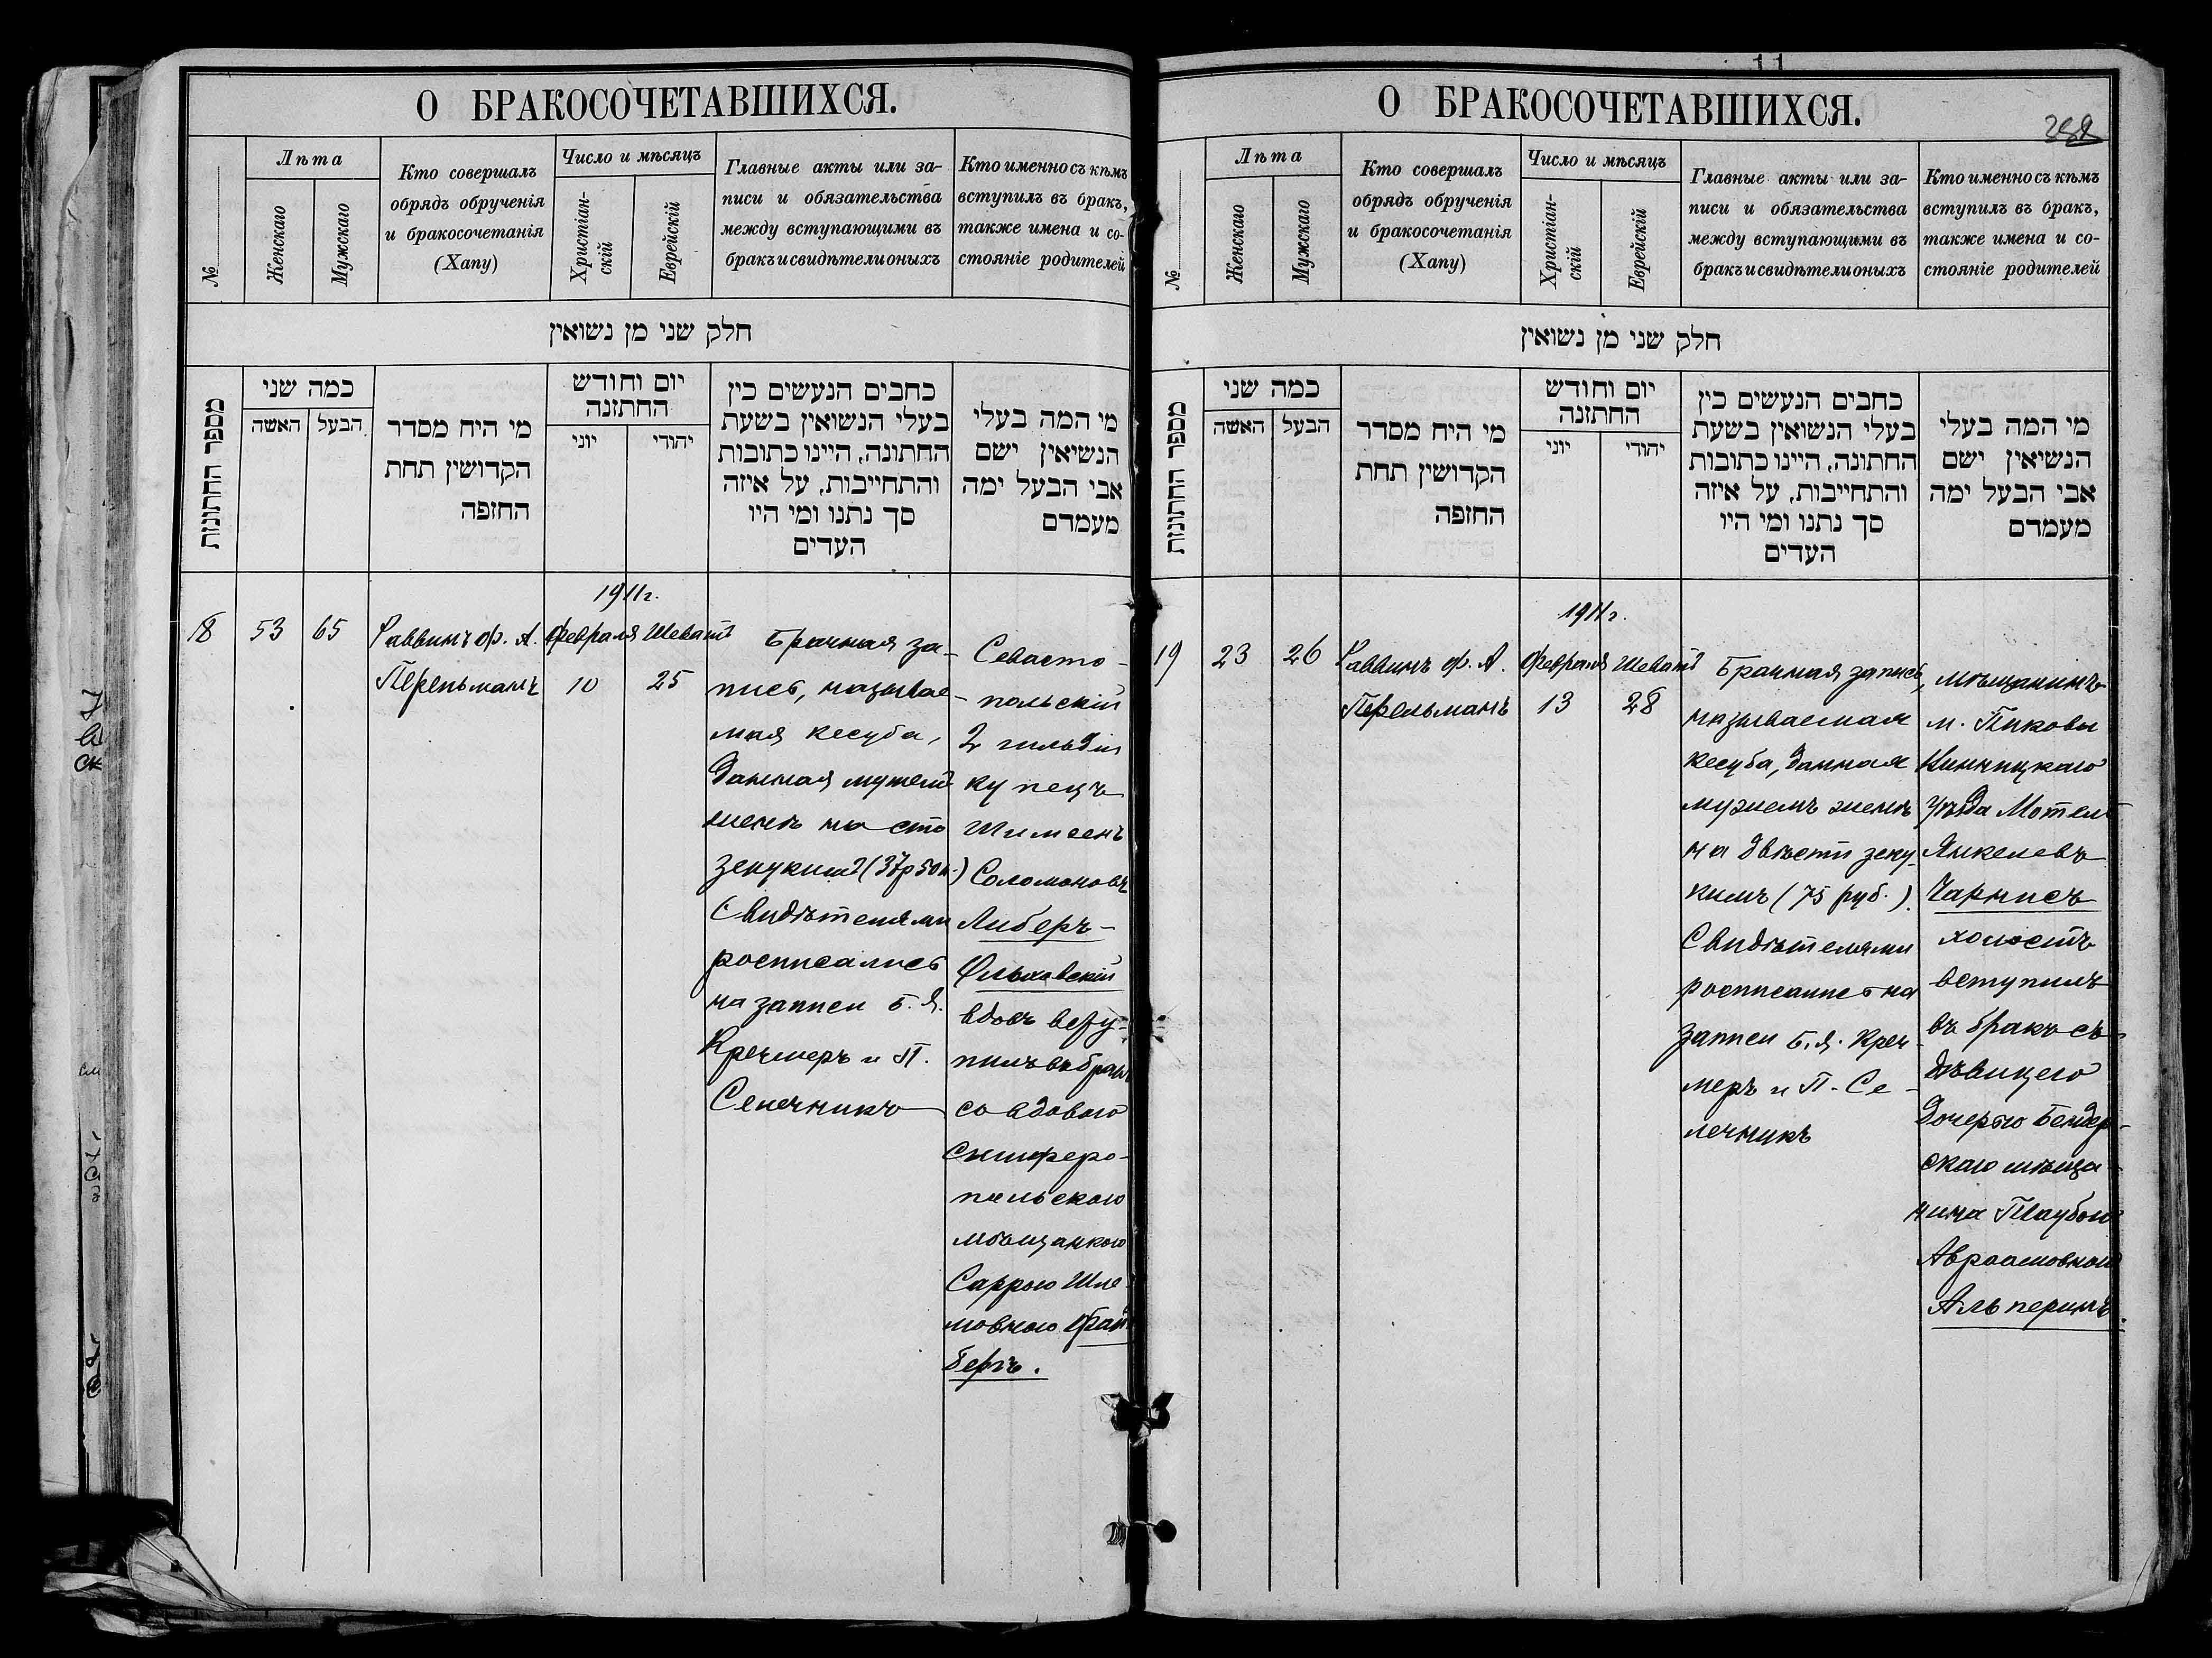 О БРАКОСОЧЕТАВШИХСЯ.
№
Лѣта
Женскаго
Мужскаго
Кто совершалъ
обрядъ обрученія
и бракосочетанія
(Хапу)
Число и мѣсяцъ
Христіан-
скій
Еврейскій
Главные акты или за-
писи и обязательства
между вступающими въ
бракъ и свидѣтели оныхъ
Кто именно съ кѣмъ
вступилъ въ бракъ,
также имена и со-
стояніе родителей
חלק שני מן נשואין
מספר החתונות
כמה שני
האשה
הבעל
מי היח מסדר
הקדושין תחת
החזפה
יום וחודש
החתזנה
יוני
יהודי
כחבים הנעשים כין
בעלי הנשואין בשעת
החתונה, היינו כתובות
והתחייבות, על איזה
סך נתנו ומי היו
העדים
מי המה בעלי
הנשיאין ישם
אבי הבעל ימה
מעמדם
18
53
65
Раввинъ Ф. А.
Перельманъ
1911 г.
Февраля
10
Шеватъ
25
Брачная за-
пись, называе-
мая кесуба,
данная мужемъ
женѣ на сто
зекукимъ (37 р 50 к.)
Свидѣтелями
росписались
на записи Б. Я.
Кречмеръ и П.
Селечникъ
Севасто-
польскій
2 гильдіи
купецъ
Шимеенъ
Соломоновъ
Либеръ-
Ольховскій
вдовъ всту-
пилъ въ бракъ
со вдовою
Симферо-
польскою
мѣщанкою
Саррою Шле-
мовною Файн
бергъ.
11
О БРАКОСОЧЕТАВШИХСЯ.
№
Лѣта
Женскаго
Мужскаго
Кто совершалъ
обрядъ обрученія
и бракосочетанія
(Хапу)
Число и мѣсяцъ
Христіан-
скій
Еврейскій
Главные акты или за-
писи и обязательства
между вступающими въ
бракъ и свидѣтели оныхъ
Кто именно съ кѣмъ
вступилъ въ бракъ,
также имена и со-
стояніе родителей
חלק שני מן נשואין
מספר החתונות
כמה שני
האשה
הבעל
מי היח מסדר
הקדושין תחת
החזפה
יום וחודש
החתזנה
יוני
יהודי
כחבים הנעשים כין
בעלי הנשואין בשעת
החתונה, היינו כתובות
והתחייבות, על איזה
סך נתנו ומי היו
העדים
מי המה בעלי
הנשיאין ישם
אבי הבעל ימה
מעמדם
19
23
26
Раввинъ Ф. А.
Перельманъ
1911 г.
Февраля
13
Шеватъ
28
Брачная запись,
называемая
кесуба, данная
мужемъ женѣ
на двѣсти зеку-
кимъ (75 руб.).
Свидѣтелями
росписались на
записи Б. Я. Креч-
меръ и П. Се-
лечникъ
мѣщанинъ
м. Пиковы
Винницкаго
уѣзда Мотель
Янкелевъ
Чарнисъ
холостъ
вступилъ
въ бракъ съ
дѣвицею
дочерью Бендер-
скаго мѣща-
нина Таубою
Авраамовною
Альперинъ.